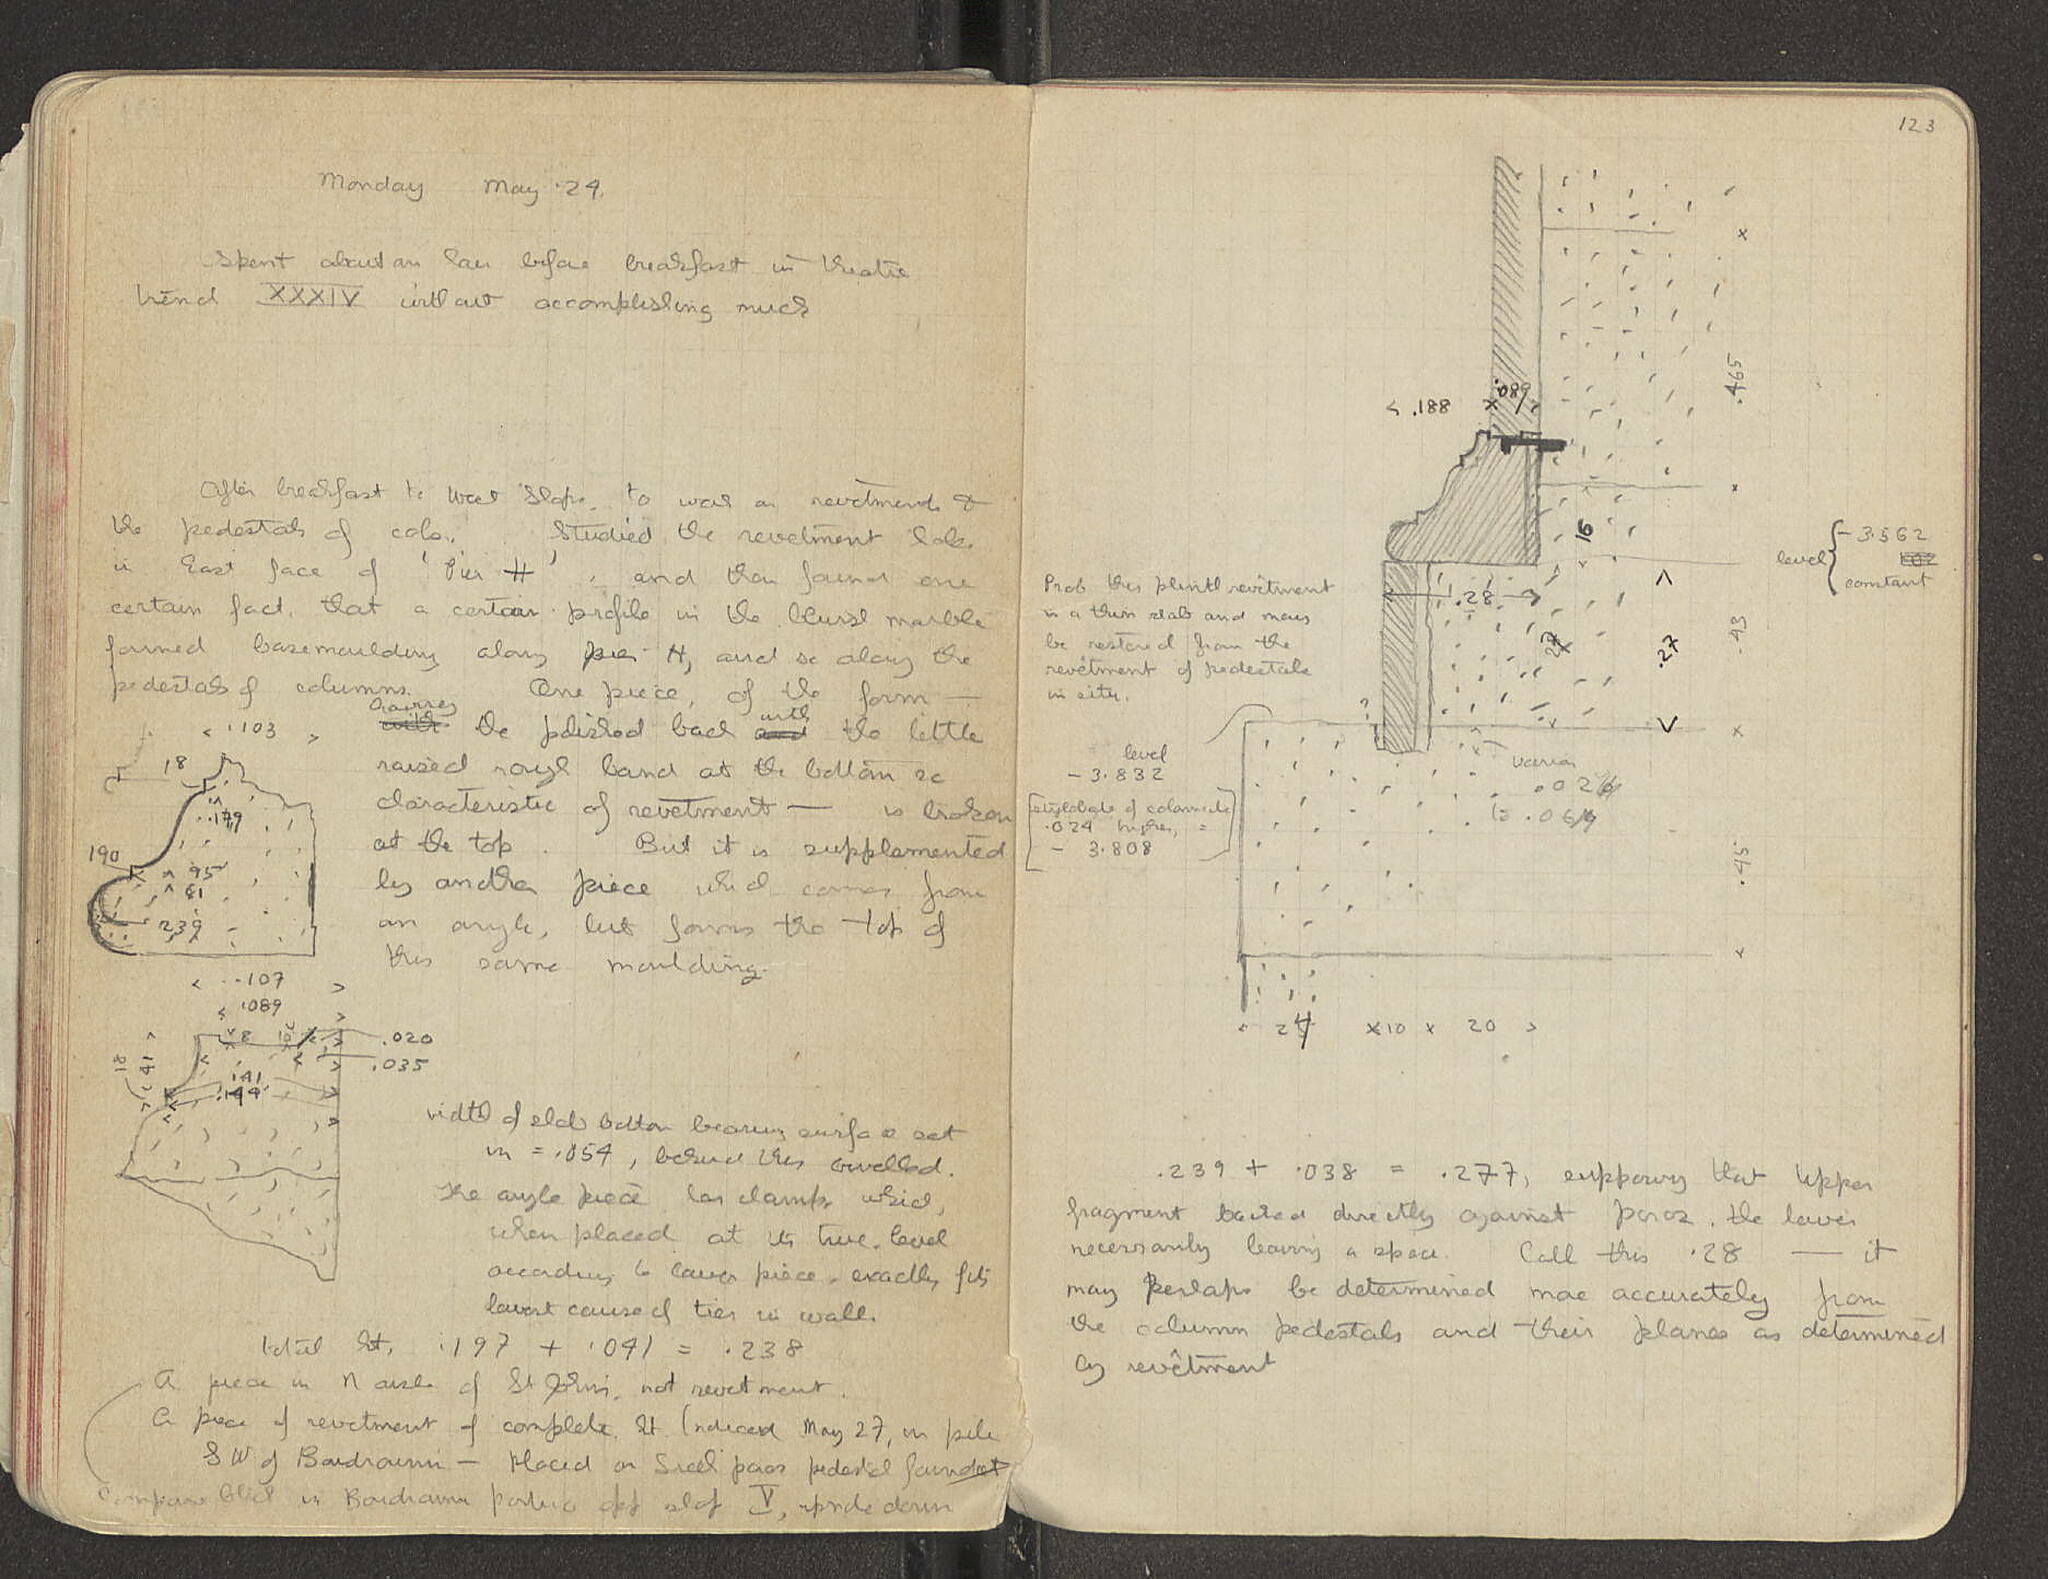 Monday May 24.
Spent about an hour before breakfast in theatre
trench XXXIV without accomplishing much
After breakfast to West Slope to work on revetments &
the pedestals of cols. Studied the revetment holes
in East face of 'Pier H', and then found one
certain fact, that a certain profile in the bluish marble
formed basemoulding along pier H, and so along the
pedestals of columns. One piece, of the form —
with the polished back and with the little
raised rough band at the bottom so
characteristic of revetment — is broken
at the top. But it is supplemented
by another piece which comes from
an angle, but forms the top of
this same moulding.
.103
18
.179
190
95
61
239
.107
.089
8
10
.020
.035
18
41
.141
.149
width of slab bottom bearing surface set
in = .054, behind this bevelled.
The angle piece has clamps which,
when placed at its true level
according to lower piece, exactly fits
lowest course of ties in wall.
total ht. .197 + .041 = .238
A piece in N aisle of St John's, not revetment.
A piece of revetment of complete ht. (noticed May 27, in pile
SW of Boudroumi — Placed on poros pedestal
Compare block in Boudroumi off V, upside down
123
.188
.089
.465
16
level { - 3.562
constant
.28
27
.27
.43
Prob this plinth revêtment
is a thin slab and may
be restored from the
revêtment of pedestals
in situ.
?
level
- 3.832
[stylobate of colonnade
.024 higher, =
- 3.808]
varies
.026
to .064
.45
24 × 10 × 20
.239 + .038 = .277, supposing that upper
fragment backed directly against poros, the lower
necessarily leaving a space. Call this .28 — it
may perhaps be determined more accurately from
the column pedestals and their planes as determined
by revêtment